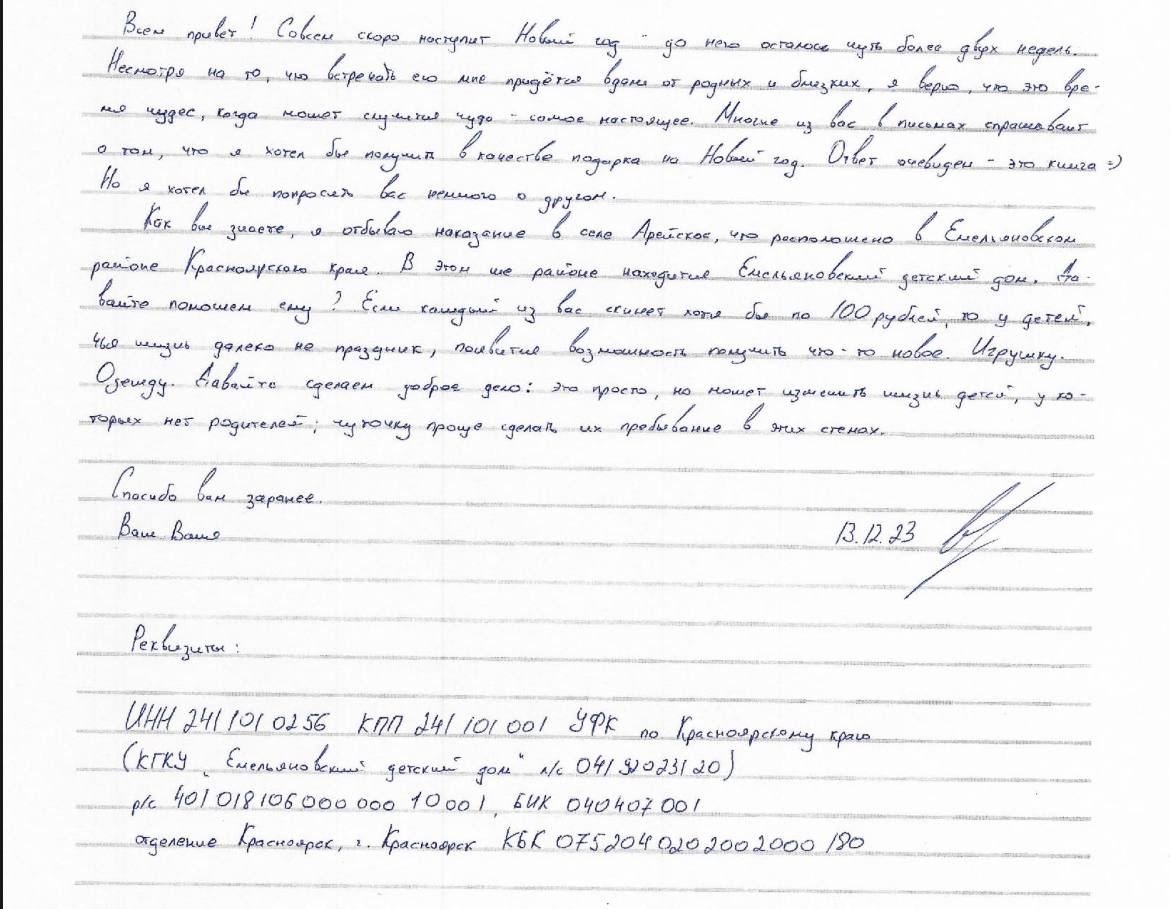 Всем привет! Совсем скоро наступит Новый год - до него осталось чуть более двух недель.
Несмотря на то, что встречать его мне придётся вдали от родных и близких, я верю, что это вре-
мя чудес, когда может случиться чудо - самое настоящее. Многие из вас в письмах спрашивают
о том, что я хотел бы получить в качестве подарка на Новый год. Ответ очевиден - это книга =)
Но я хотел бы попросить вас немного о другом.
Как вы знаете, я отбываю наказание в селе Арейское, что расположено в Емельяновском
районе Красноярского края. В этом же районе находится Емельяновский детский дом. Да-
вайте поможем ему? Если каждый из вас скинет хотя бы по 100 рублей, то у детей,
чья жизнь далеко не праздник, появится возможность получить что-то новое. Игрушку.
Одежду. Давайте сделаем доброе дело: это просто, но может изменить жизнь детей, у ко-
торых нет родителей; чуточку проще сделать их пребывание в этих стенах.
Спасибо вам заранее.
Ваш Ваня
13.12.23
Реквизиты:
ИНН 2411010256 КПП 241101001 УФК по Красноярскому краю
(КГКУ „Емельяновский детский дом" л/с 04192023120)
р/с 40101810600000010001, БИК 040407001
отделение Красноярск, г. Красноярск КБК 07520402020020000180